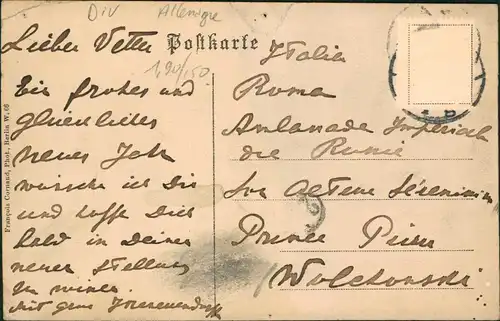 DIV Allemagne
Lieber Vetter
Postkarte
1,90/150
Ein frohes und
glückliches
neues Jahr
wünsche ich Dir
und hoffe Dich
bald in Deiner
neuen Stellung
zu
Mit Gruss
Italia
Roma
Ambasciade Imperiale
de Russie
Son Altesse Sérénissime
Prince Pierre
Wolchonski
François Cornand, Phot., Berlin W. 66